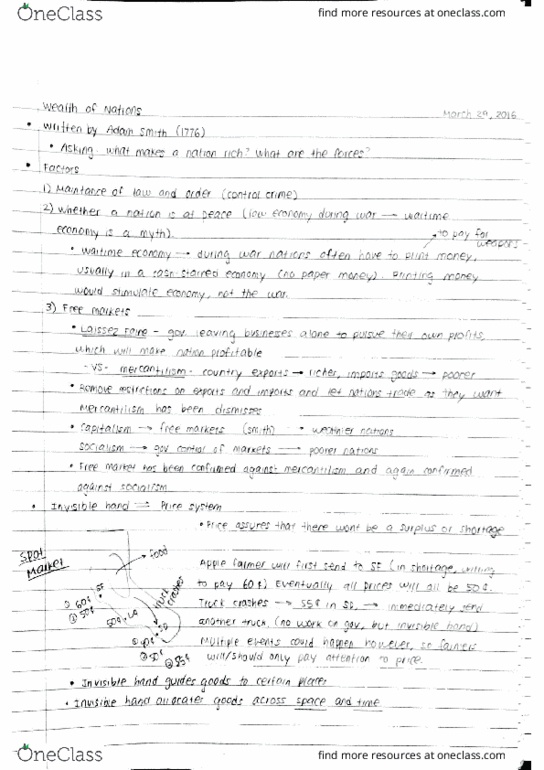 OneClass
find more resources at oneclass.com
Wealth of Nations
March 29, 2016
• Written by Adam Smith (1776)
• Asking what makes a nation rich? What are the forces?
• Factors
1) Maintance of law and order (control crime)
2) Whether a nation is at peace (low economy during war → wartime
economy is a myth).
to pay for
weapons
• Wartime economy → during war nations often have to print money,
usually in a cash-starved economy (no paper money). Printing money
would stimulate economy, not the war.
3) Free markets
• Laissez Faire - gov. leaving businesses alone to pursue their own profits,
which will make nation profitable
-VS- mercantilism - country exports → richer, imports goods → poorer
• Remove restrictions on exports and imports and let nations trade as they want
Mercantilism has been dismisses
• Capitalism → free markets (Smith) → wealthier nations
Socialism → gov control of markets → poorer nations
• Free market has been confirmed against mercantilism and again confirmed
against socialism
• Invisible hand = Price system
• Price assures that there wont be a surplus or shortage
Spot
Market
food
Apple farmer will first send to SF (in shortage, willing
to pay 60¢) Eventually all prices will all be 50¢.
Truck crashes → 55¢ in SD → immediately send
another truck. (no work on gov, but invisible hand)
Multiple events could happen however, so farmers
will/should only pay attention to price.
① 60¢ SF
② 50¢
50¢ LA
truck
crashes
① 40¢ SD
② 50¢
③ 55¢
• Invisible hand guides goods to certain places
• Invisible hand allocates goods across space and time
OneClass
find more resources at oneclass.com